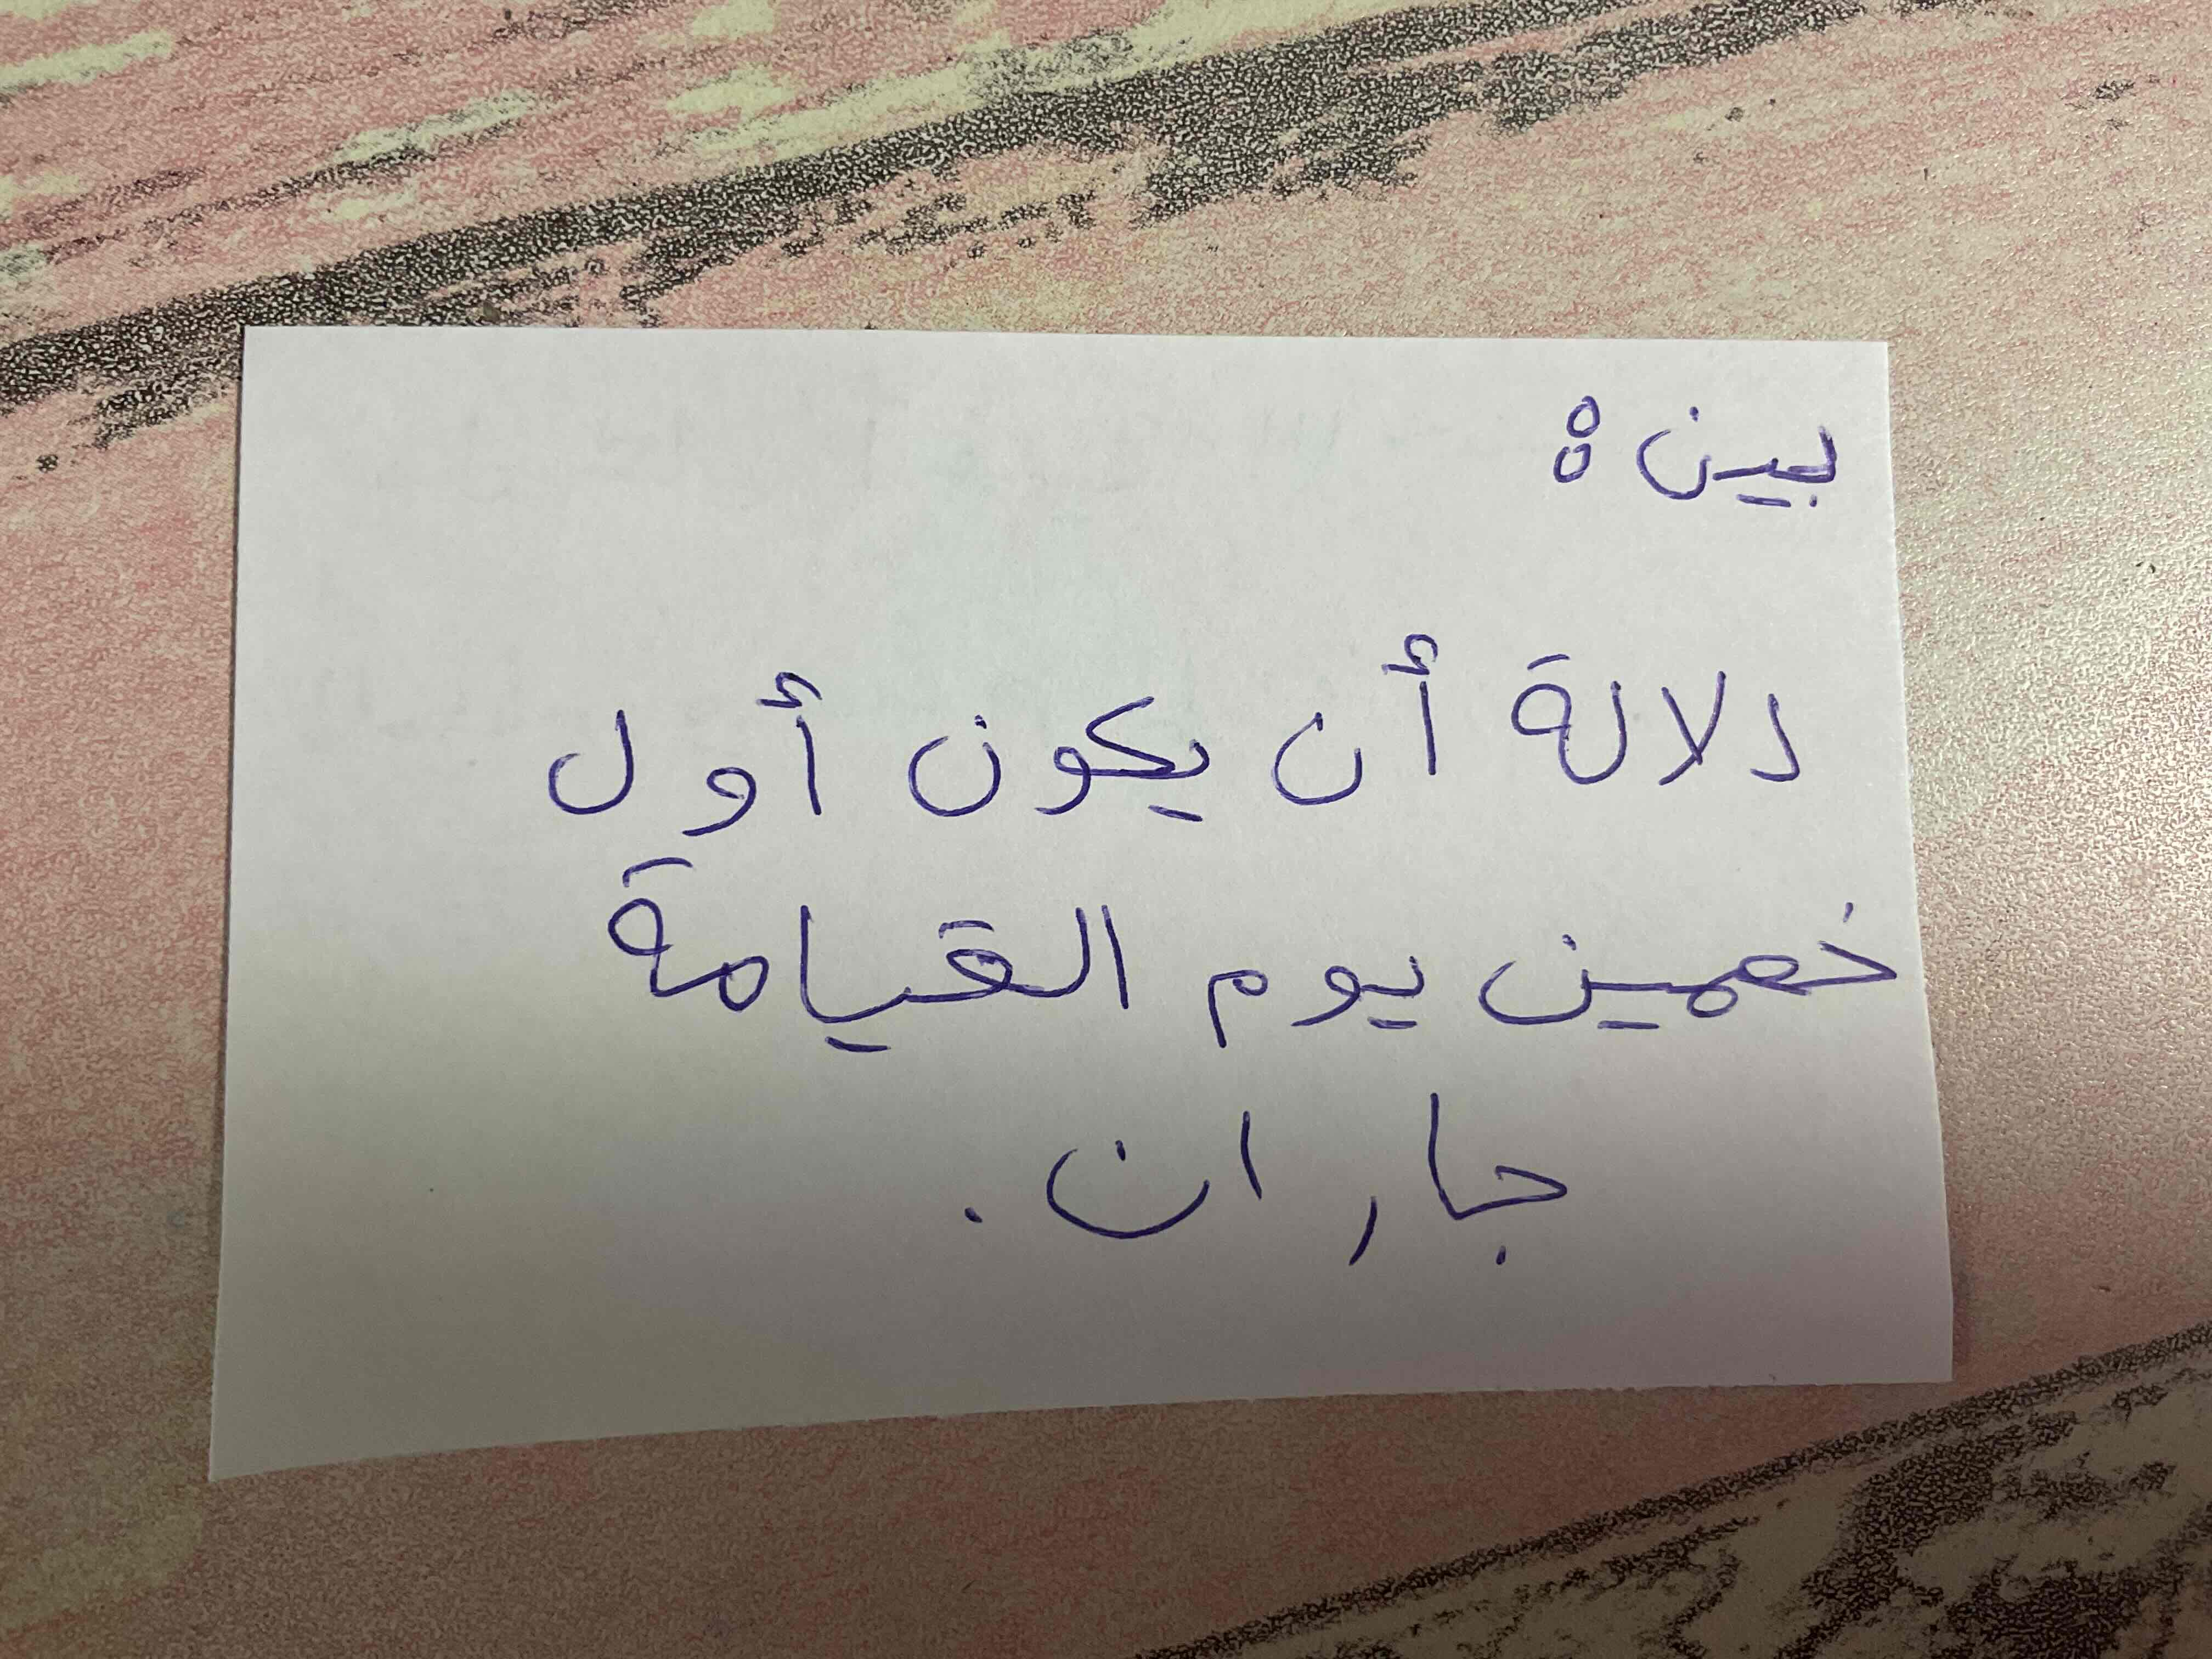 بين:
دلالة أن يكون أول
خصمين يوم القيامة
جاران.